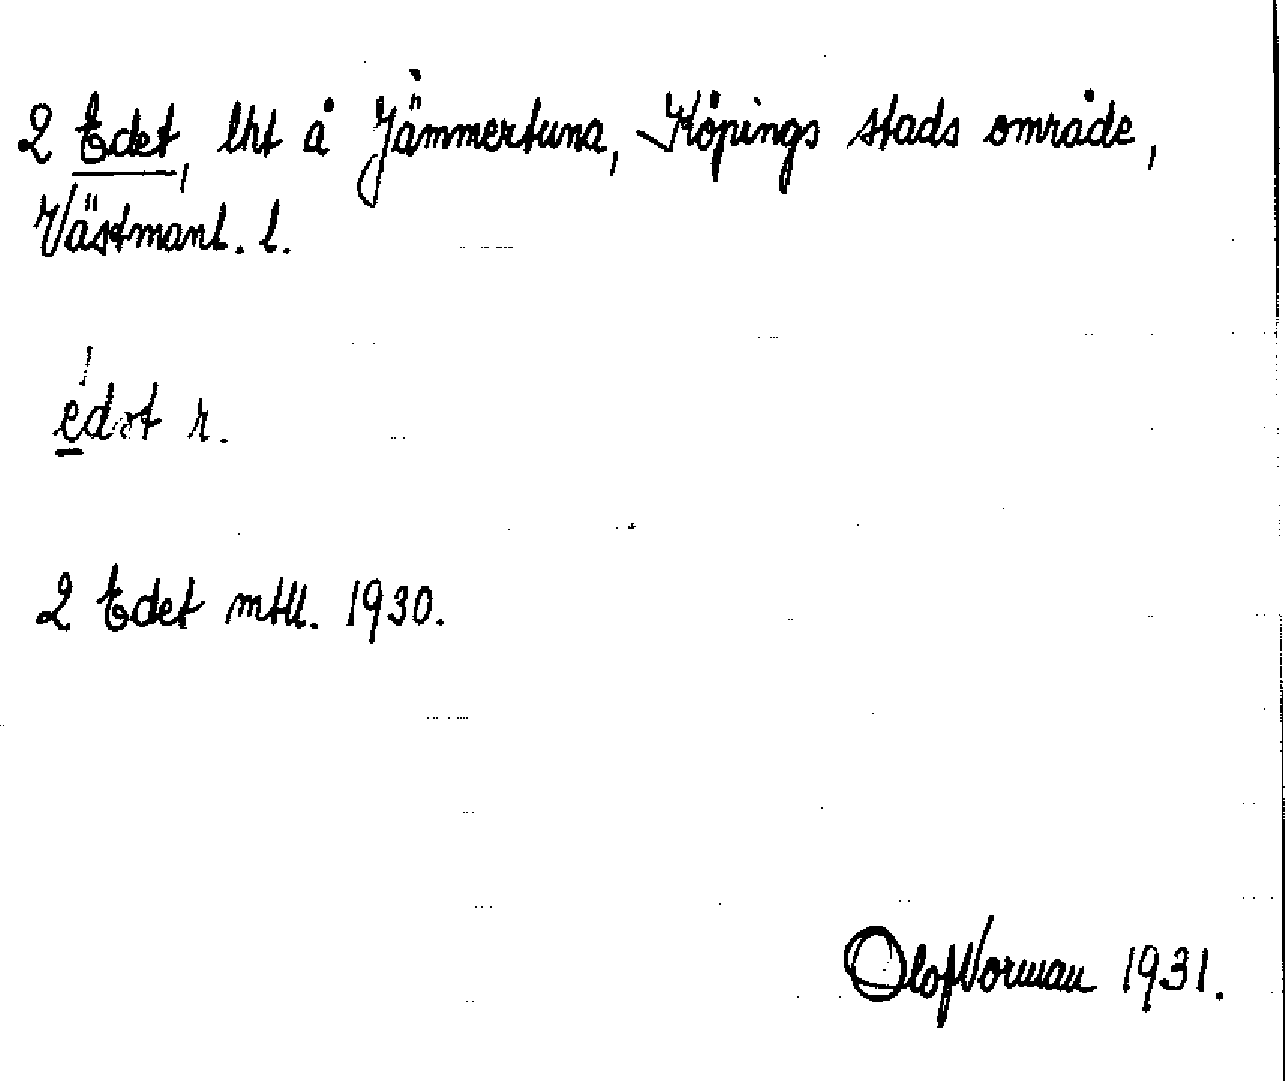 2 Edet, lht å Jämmertuna, Köpings stads område,
Västmanl. l.
édət r.
2 Edet mtll. 1930.
Olof Norman 1931.